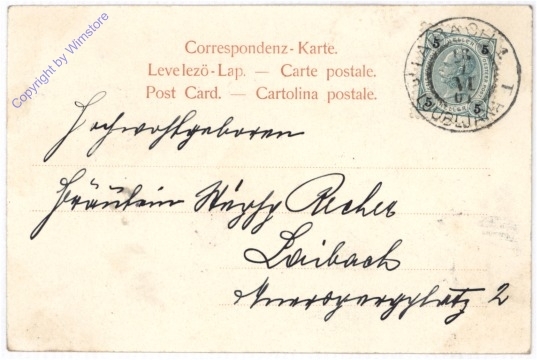 Copyright by Wimstore
Correspondenz-Karte.
Levelezö-Lap. — Carte postale.
Post Card. — Cartolina postale.
5 5
5 5
LAIBACH 1
LJUBLJANA
Hochwohlgeboren
Fräulein Recher
Laibach
Auerspergplatz 2